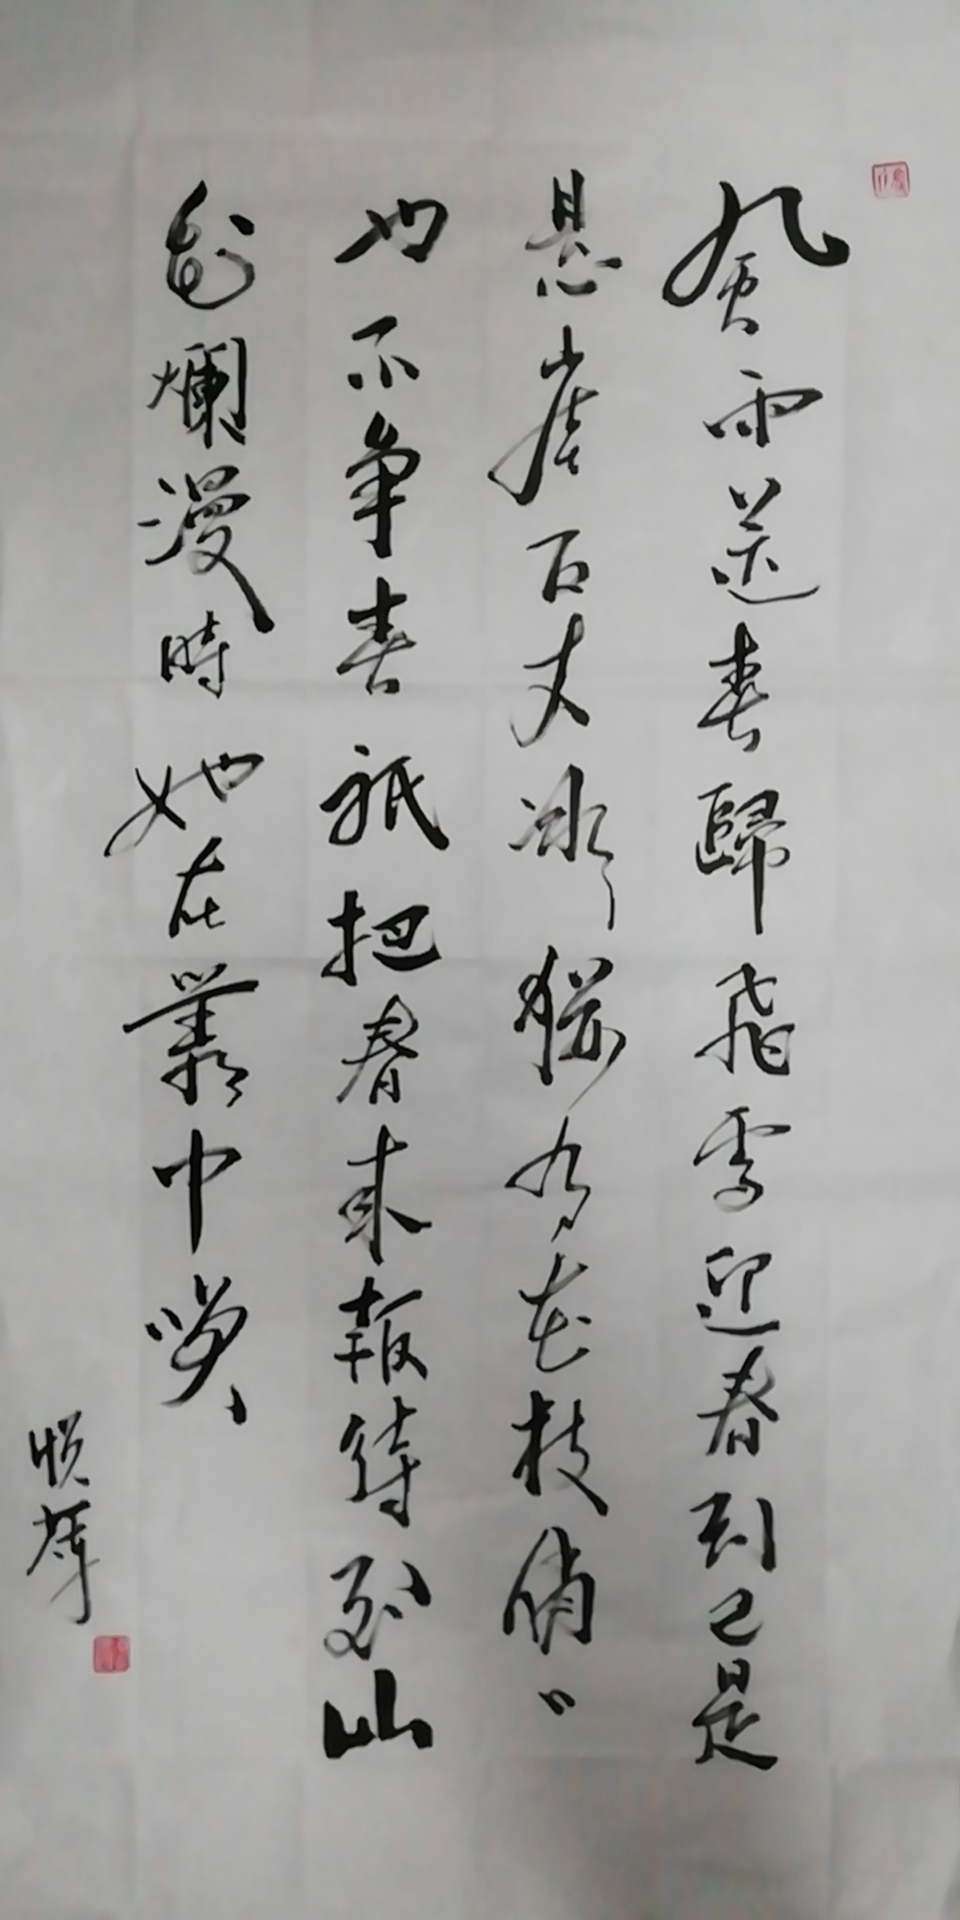 風雨送春歸飛雪迎春到已是
悬崖百丈冰猶有花枝俏〃
也不争春祇把春来報待到山
花爛漫時她在叢中笑